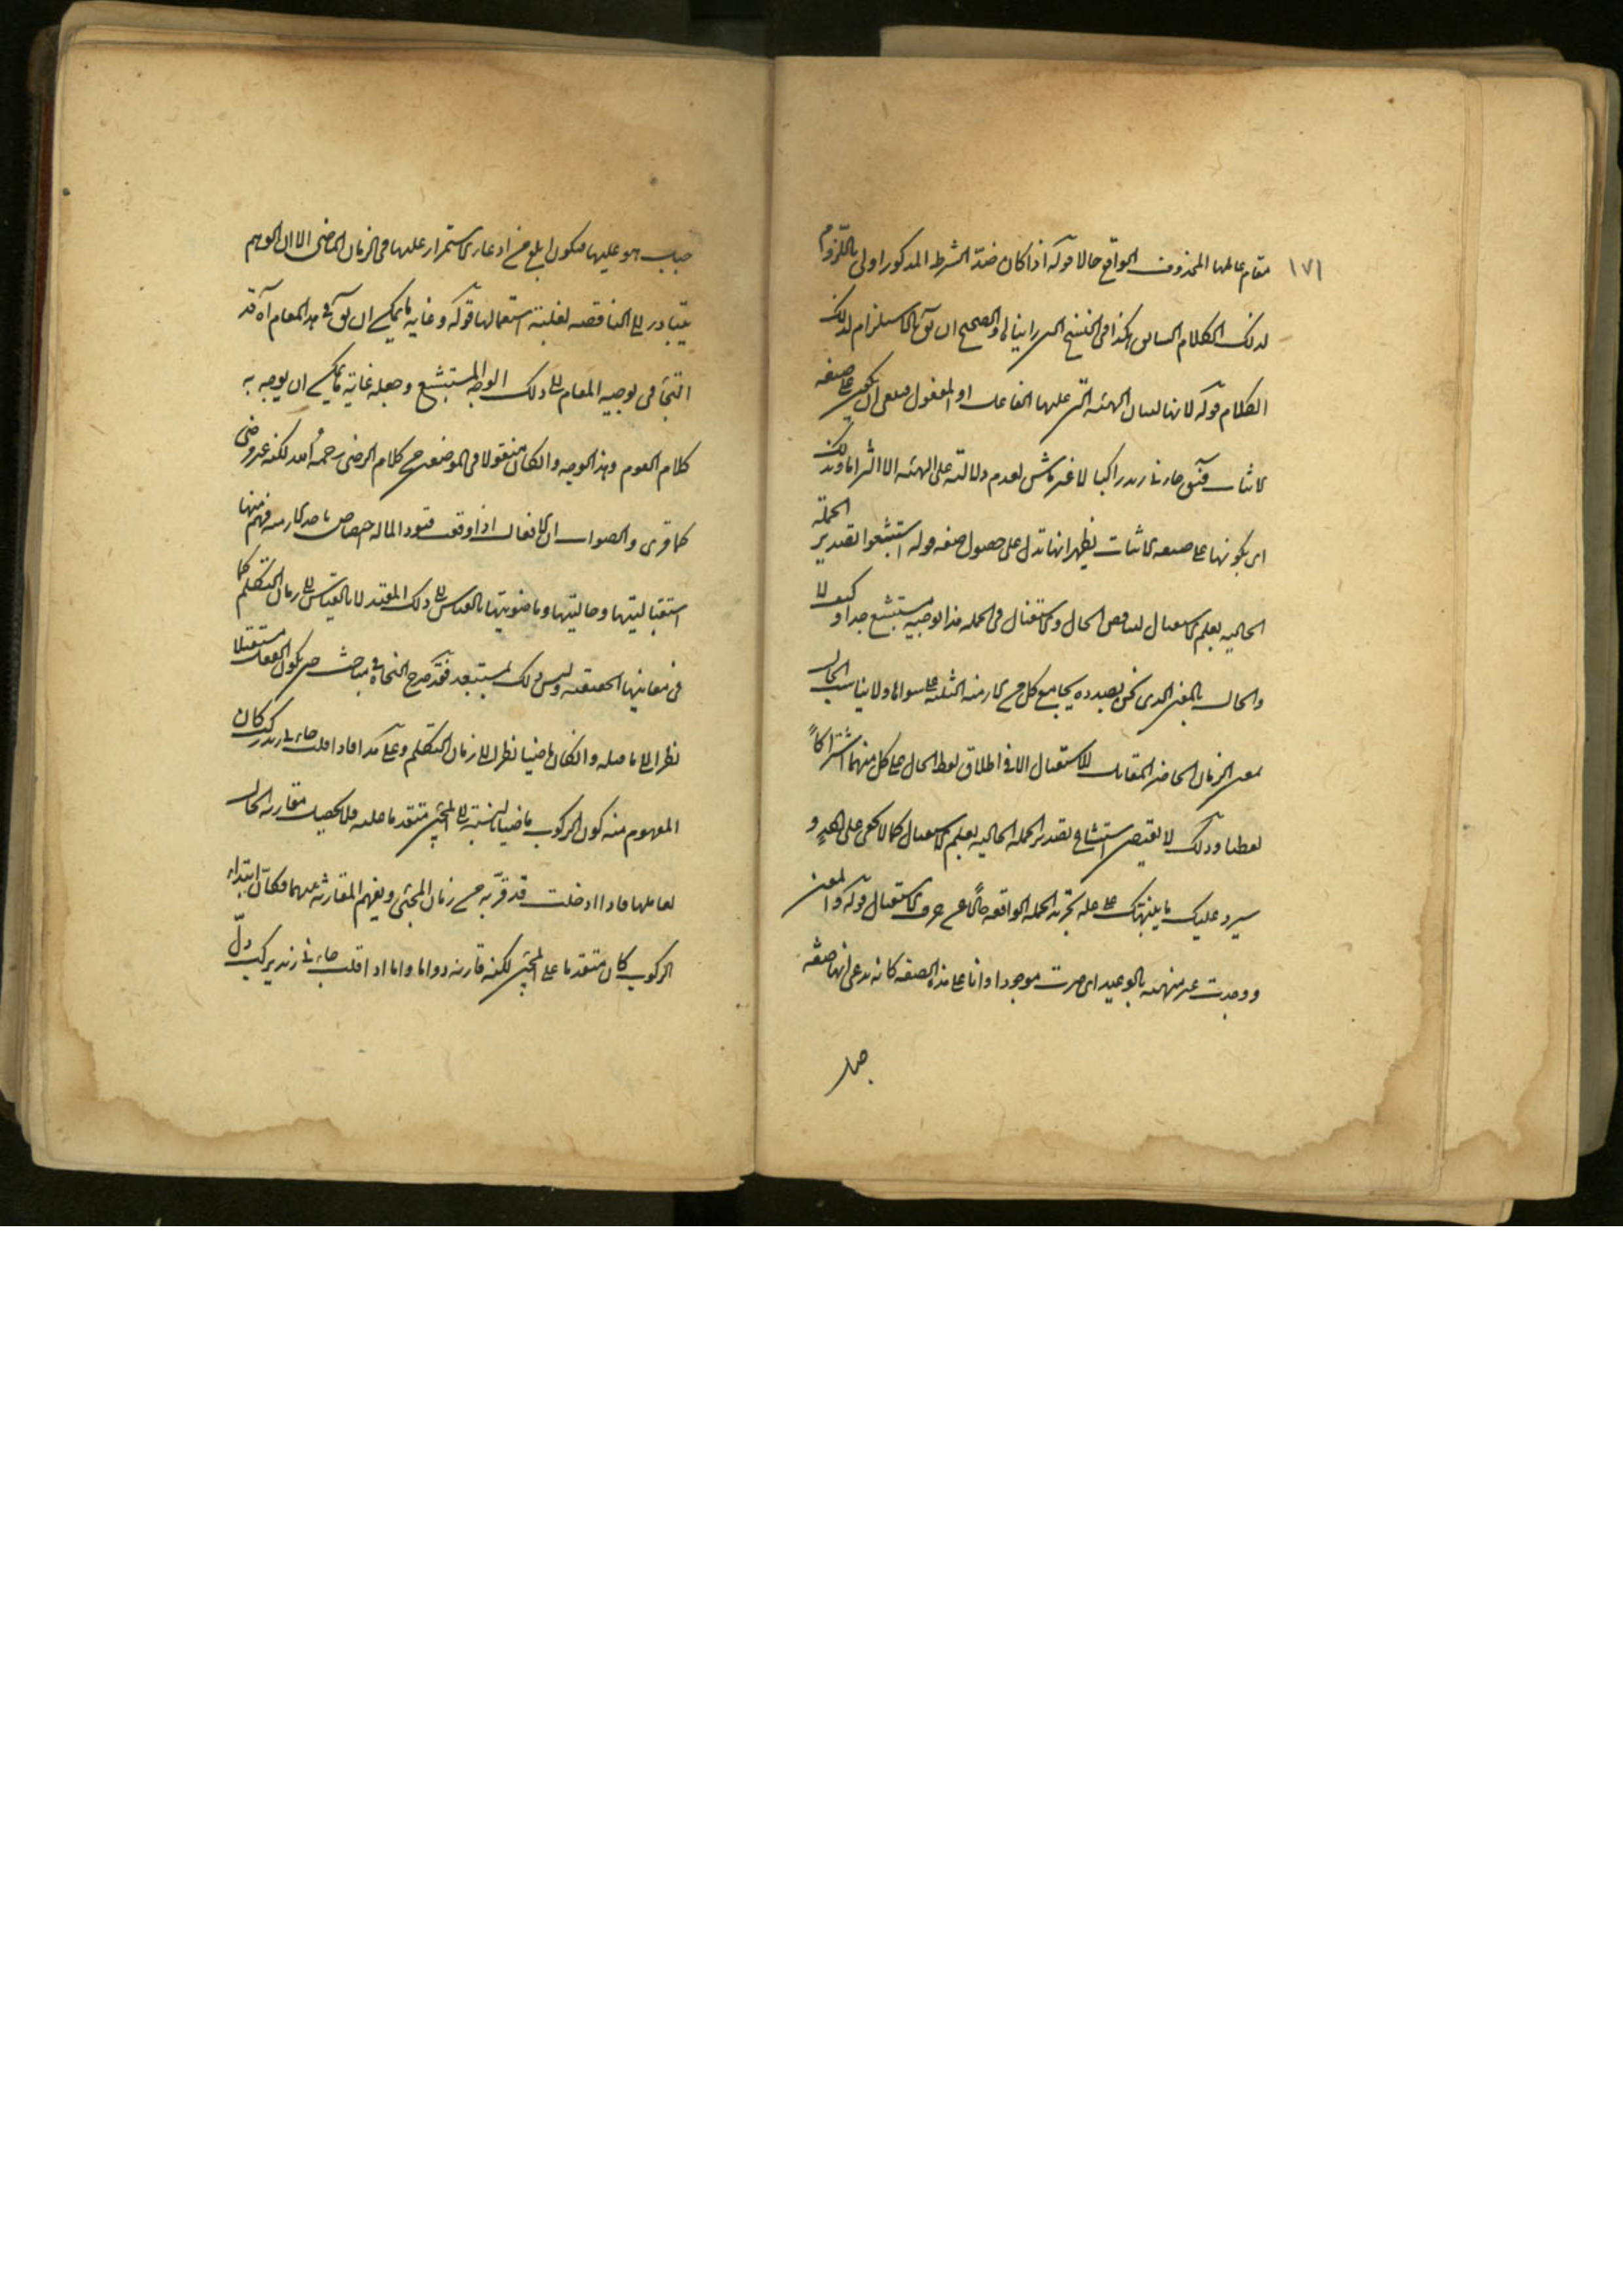 ١٧١
مقام عاملها المحذوف الواقع حالا قوله اذا كان ضد الشرط المذكور اولى باللزوم
لذلك الكلام السابق هكذا فى النسخ التى رايناها والصحيح ان يق بالاستلزام لذلك
الكلام قوله لانها لبيان الهيئة التى عليها الفاعل او المفعول فمعنى ان يكون على صيغة
الاثبات فيق جاءنى زيد راكبا لا غير ماش لعدم دلالته على الهيئة الا التزاما وبذلك
اى بكونها على صيغة الاثبات يظهر انها تدل على حصول صفة قوله استبشعوا تصدير الجملة
الحالية بعلم الاستقبال لتناقض الحال والاستقبال فى الجملة هذا توجيه مستبشع جدا وكيف لا
والحال بالمعنى الذى نحن بصدده يجامع كل من الازمنة الثلثة على سواها ولا يناسب الحال
بمعنى الزمان الحاضر المقابل للاستقبال الا فى اطلاق لفظ الحال على كل منهما اشتراكاً
لفظيا وذلك لا يقتضى استبشاع تصدير الجملة الحالية بعلم الاستقبال كما لا يخفى على احد و
سيرد عليك ما ينبهك على علة تجرية الجملة الواقعة حالاً عن حرف الاستقبال قوله والمعنى
ووجدت غير منهنه بالوعيد اى صرت موجودا وانا على هذه الصفة كانه يدعى انها صفة
جبل
جبل هو عليها فيكون ابلغ من ادعاء الاستمرار عليها فى الزمان الماضى الا ان الوهم
يتبادر الى الناقصة لغلبة استعمالها قوله وغاية ما يمكن ان يق فى هذا المقام اه قد
التجأ فى توجيه المقام الى ذلك الوجه المستبشع وجعله غاية ما يمكن ان يوجه به
كلام القوم وهذا الوجه وان كان منقولا فى الموضعين من كلام الرضى رحمه الله لكنه غير مرضى
كما ترى والصواب ان الافعال اذا وقعت قيودا لما له اختصاص باحد الازمنة فهم منها
استقباليتها وحاليتها وماضويتها بالقياس الى ذلك المقيد لا بالقياس الى زمان التكلم كما
فى معانيها الحقيقية وليس ذلك بمستبعد فقد صرح النحاة فى مباحث حتى بكون الفعل مستقبلا
نظرا الى ما قبله وان كان ماضيا نظرا الى زمان التكلم وعلى هذا فاذا قلت جاءنى زيد ركب كان
المفهوم منه كون الركوب ماضيا بالنسبة الى المجئ متقدما عليه فلا يحصل مقارنة الحال
لعاملها فاذا ادخلت قد قربه من زمان المجئ ويفهم المقارنة بينهما فكأن ابتداء
الركوب كان متقدما على المجئ لكنه قارنه دواما واما اذا قلت جاءنى زيد يركب دلّ